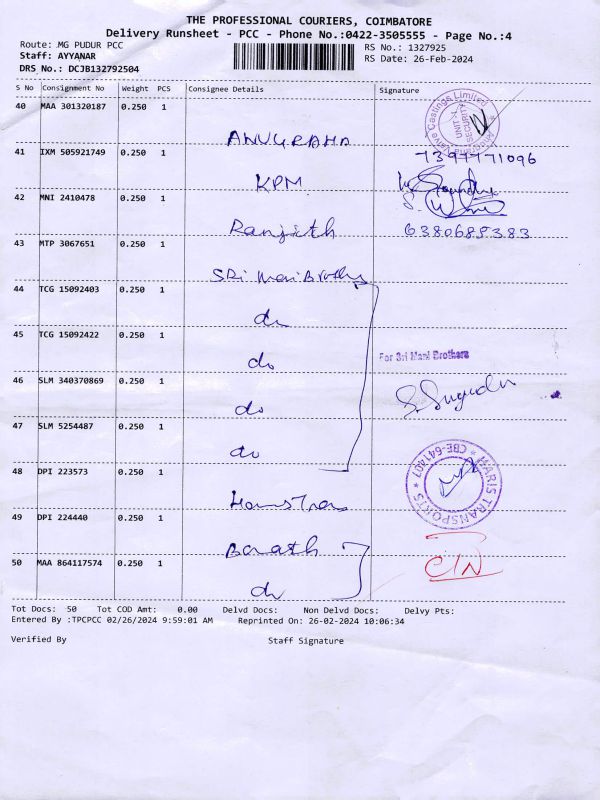 THE PROFESSIONAL COURIERS, COIMBATORE
Delivery Runsheet - PCC - Phone No.:0422-3505555 - Page No.:4
Route: MG PUDUR PCC
RS No.: 1327925
Staff: AYYANAR
RS Date: 26-Feb-2024
DRS No.: DCJB132792504
S No Consignment No Weight PCS Consignee Details Signature
40 MAA 301320187 0.250 1 ANUGRAHA
Valve Castings Limited UNIT SECURITY
41 IXM 505921749 0.250 1 KPM
7397771096
42 MNI 2410478 0.250 1 Ranjith
6380689383
43 MTP 3067651 0.250 1 SRi Mani Brothers
44 TCG 15092403 0.250 1 do
45 TCG 15092422 0.250 1 do
For Sri Mani Brothers
46 SLM 340370869 0.250 1 do
47 SLM 5254487 0.250 1 do
48 DPI 223573 0.250 1
HARIS TRANSPORTS * CBE-641407 *
49 DPI 224440 0.250 1 Barath
50 MAA 864117574 0.250 1 do
Tot Docs: 50 Tot COD Amt: 0.00 Delvd Docs: Non Delvd Docs: Delvy Pts:
Entered By :TPCPCC 02/26/2024 9:59:01 AM Reprinted On: 26-02-2024 10:06:34
Verified By Staff Signature